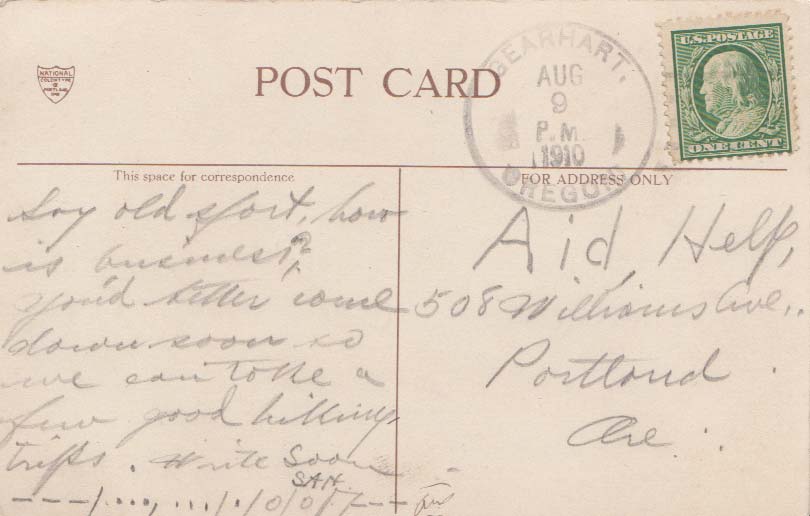 NATIONAL
COLORTYPE
CO
PORTLAND
ORE
POST CARD
GEARHART,
AUG
9
P.M.
1910
OREGON
U.S. POSTAGE
ONE CENT
This space for correspondence
FOR ADDRESS ONLY
Say old sport, how
is business?
you'd better come
down soon so
we can take a
few good hiking
trips. Write Soon
Aid, Help,
508 Williams Ave,.
Portland
Ore.